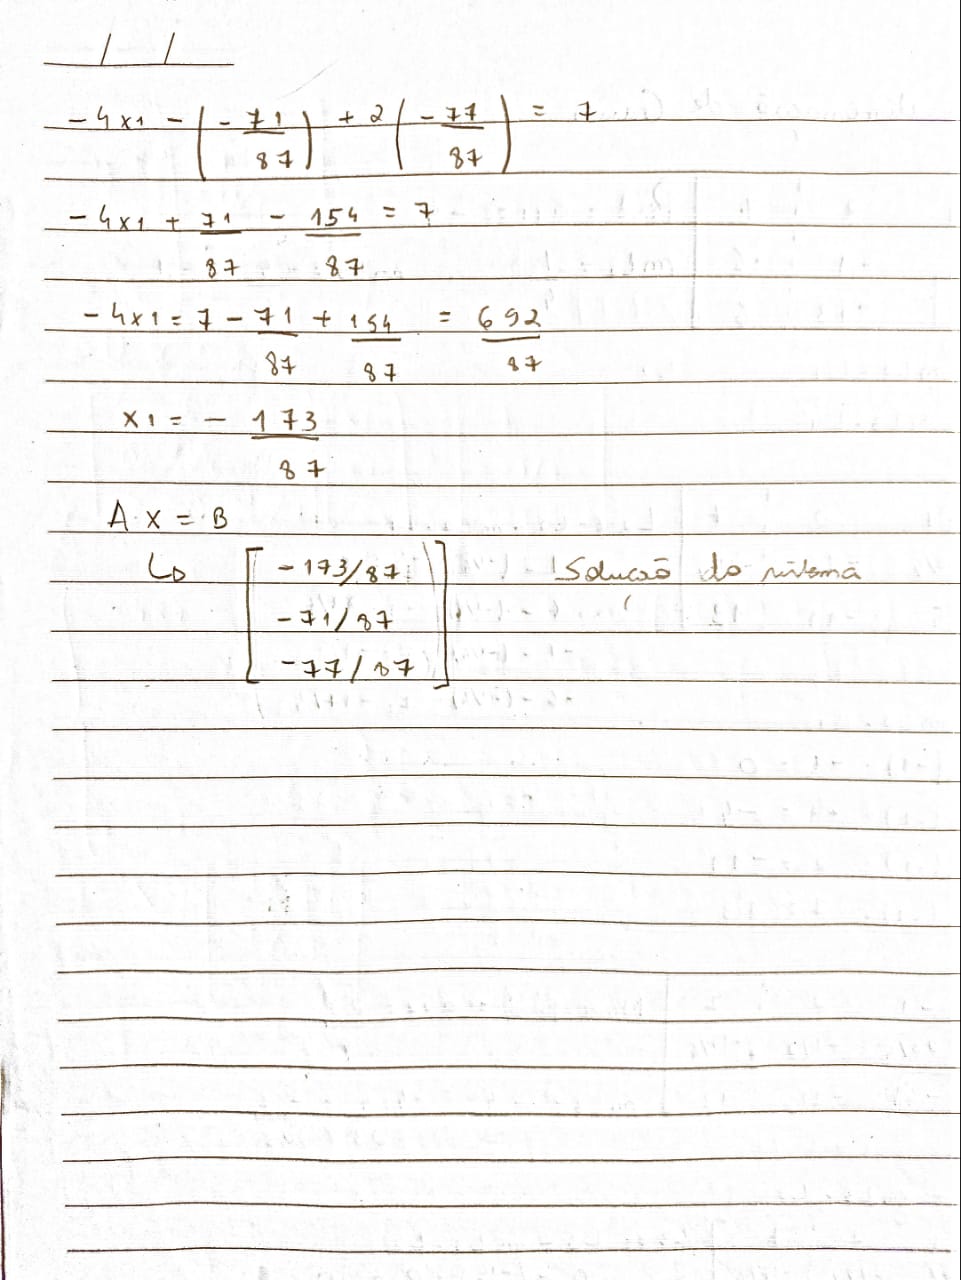 / /
-4x1 - (-71/87) + 2(-77/87) = 7
-4x1 + 71/87 - 154/87 = 7
-4x1 = 7 - 71/87 + 154/87 = 692/87
x1 = - 173/87
A·X = B
↳ [-173/87
-71/87
-77/87] Solução do sistema